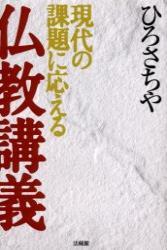 ひろさちや
現代の
課題に応える
仏教講義
法藏館